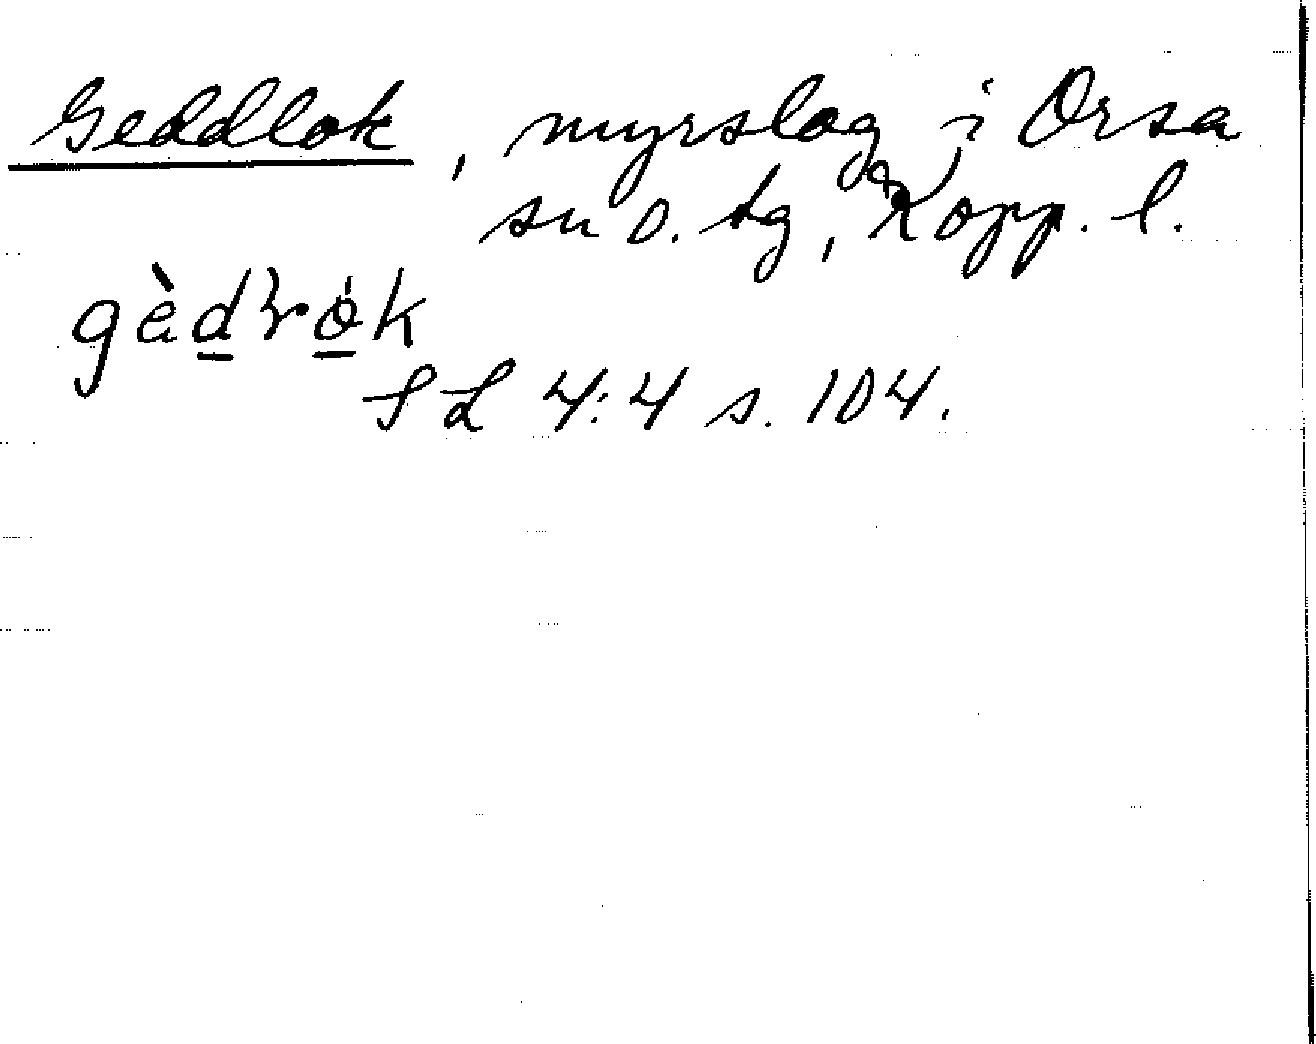 Geddlok, myrslog i Orsa
sn o. tg, Kopp. l.
gèdɽók
SL 4:4 s. 104.